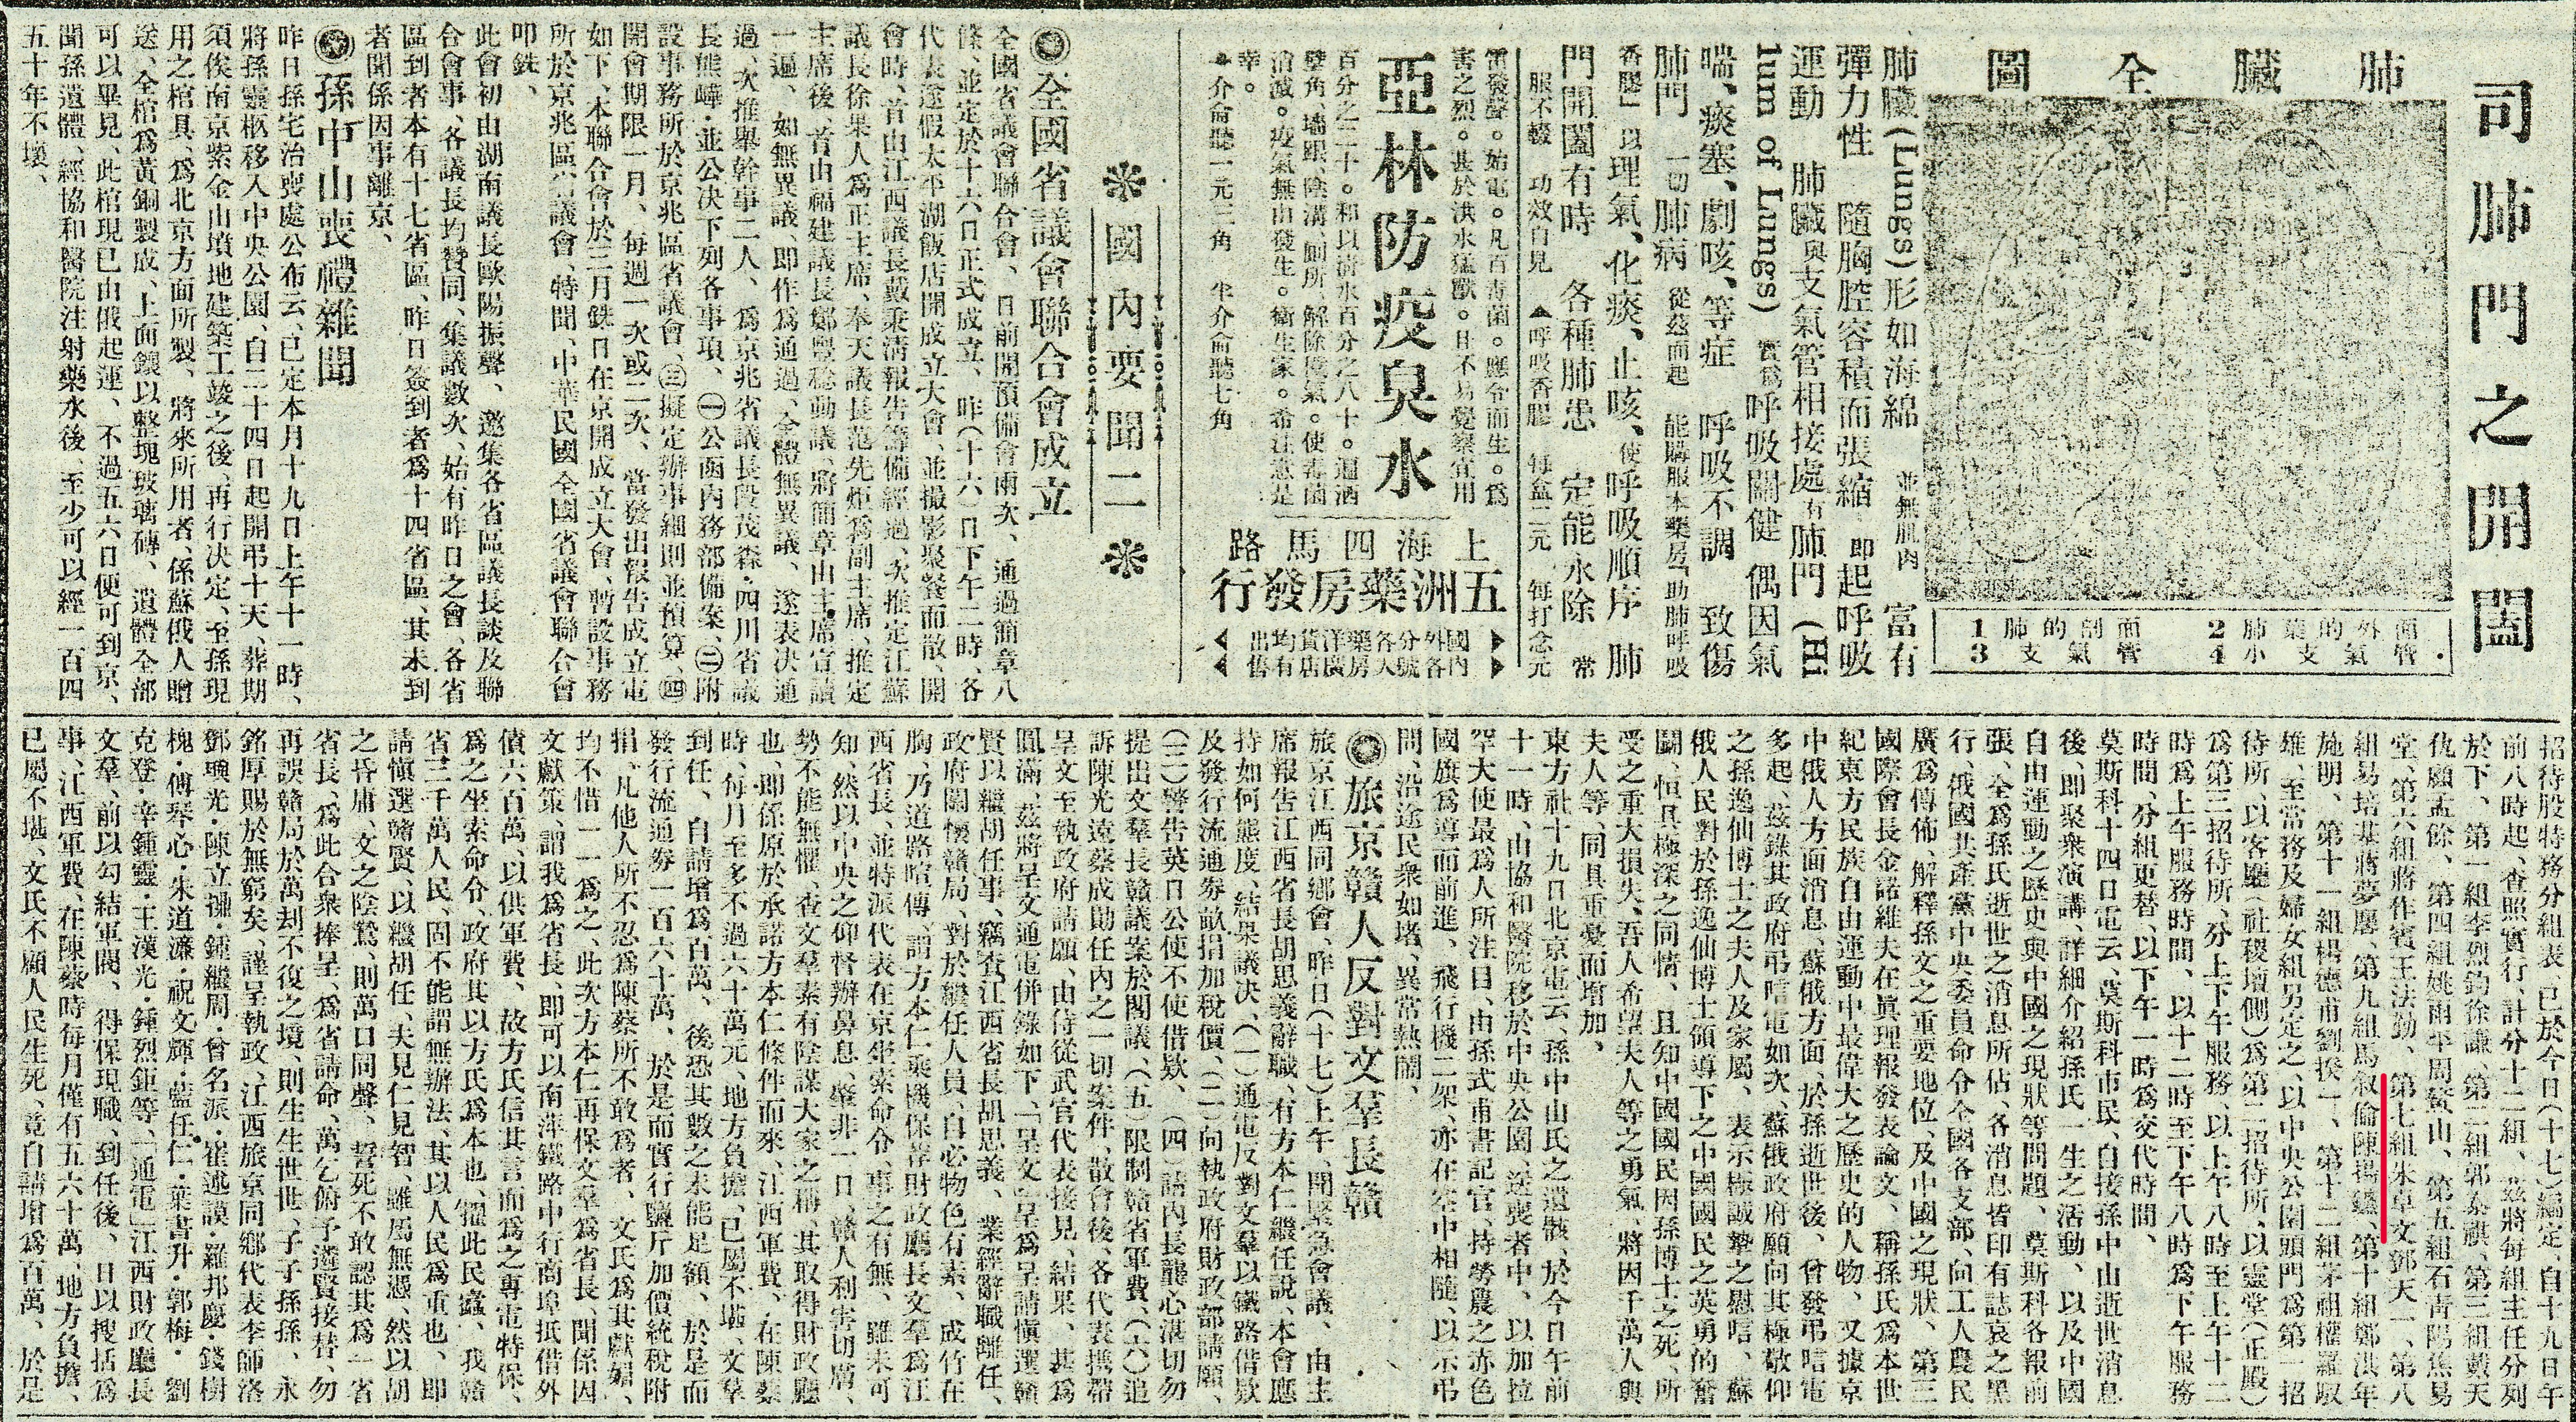 司肺門之開闔
肺臟全圖
1 肺的剖面
2 肺葉的外面
3 支氣管
4 小支氣管
肺臟(Lungs)形如海綿 並無肌肉 富有
彈力性 隨胸腔容積而張縮 即起呼吸
運動 肺臟與支氣管相接處有肺門(Hi
lum of Lungs) 實爲呼吸關健 偶因氣
喘、痰塞、劇咳、等症 呼吸不調 致傷
肺門 一切肺病 從茲而起 能購服本藥房「助肺呼吸
香膠」以理氣、化痰、止咳、使呼吸順序 肺
門開闔有時 各種肺患 定能永除 常
服不輟 功效自見 ▲呼吸香膠 每盒二元 每打念元
雷發聲。始電。凡百毒菌。應令而生。爲
害之烈。甚於洪水猛獸。且不易覺察宜用
亞林防疫臭水
百分之二十。和以清水百分之八十。遍洒
壁角、墻跟、陰溝、厠所、解除穢氣。使毒菌
消滅。疫氣無由發生。衛生家。希注意是
幸。
上海四馬路
五洲藥房發行
國內外各分號各大藥房洋廣貨店均有出售
國內要聞二
◎全國省議會聯合會成立
全國省議會聯合會、日前開預備會兩次、通過簡章八
條、並定於十六日正式成立、昨(十六)日下午二時、各
代表遂假太平湖飯店開成立大會、並撮影聚餐而散、開
會時、首由江西議長戴秉清報告籌備經過、次推定江蘇
議長徐果人爲正主席、奉天議長范先炬爲副主席、推定
主席後、首由福建議長鄭豐稔動議、將簡章由主席宣讀
一遍、如無異議、即作爲通過、全體無異議、遂表决通
過、次推舉幹事二人、爲京兆省議長段茂森·四川省議
長熊嶂·並公決下列各事項、㊀公函內務部備案、㊁附
設事務所於京兆區省議會、㊂擬定辦事細則並預算、㊃
開會期限一月、每週一次或二次、當發出報告成立電
如下、本聯合會於三月銑日在京開成立大會、暫設事務
所於京兆區省議會、特聞、中華民國全國省議會聯合會
叩銑、
此會初由湖南議長歐陽振聲、邀集各省區議長談及聯
合會事、各議長均贊同、集議數次、始有昨日之會、各省
區到者本有十七省區、昨日簽到者爲十四省區、其未到
者聞係因事離京、
◎孫中山喪禮雜聞
昨日孫宅治喪處公布云、已定本月十九日上午十一時、
將孫靈柩移入中央公園、自二十四日起開弔十天、葬期
須俟南京紫金山墳地建築工竣之後、再行決定、至孫現
用之棺具、爲北京方面所製、將來所用者、係蘇俄人贈
送、全棺爲黃銅製成、上面鑲以整塊玻璃磚、遺體全部
可以畢見、此棺現已由俄起運、不過五六日便可到京、
聞孫遺體、經協和醫院注射藥水後、至少可以經一百四
五十年不壞、
招待股特務分組表、已於今日(十七)編定、自十九日午
前八時起、查照實行、計分十二組、茲將每組主任分列
於下、第一組李烈鈞徐謙、第二組郭泰祺、第三組戴天
仇顧孟餘、第四組姚雨平周赍山、第五組石靑陽焦易
堂、第六組蔣作賓王法勤、第七組朱卓文鄧天一、第八
組易培基蔣夢麐、第九組馬叙倫陳揚鑣、第十組鄭洪年
施明、第十一組楊德甫劉揆一、第十二組茅祖權羅馭
雄、至常務及婦女組另定之、以中央公園頭門爲第一招
待所、以客廳(社稷壇側)爲第二招待所、以靈堂(正殿)
爲第三招待所、分上下午服務、以上午八時至上午十二
時爲上午服務時間、以十二時至下午八時爲下午服務
時間、分組更替、以下午一時爲交代時間、
莫斯科十四日電云、莫斯科市民、自接孫中山逝世消息
後、即聚衆演講、詳細介紹孫氏一生之活動、以及中國
自由運動之歷史與中國之現狀等問題、莫斯科各報前
張、全爲孫氏逝世之消息所佔、各消息皆印有誌哀之黑
行、俄國共產黨中央委員命令全國各支部、向工人農民
廣爲傳佈、解釋孫文之重要地位、及中國之現狀、第三
國際會長金諾維夫在眞理報發表論文、稱孫氏爲本世
紀東方民族自由運動中最偉大之歷史的人物、又據京
中俄人方面消息、蘇俄方面、於孫逝世後、曾發弔唁電
多起、茲錄其政府弔唁電如次、蘇俄政府願向其極敬仰
之孫逸仙博士之夫人及家屬、表示極誠摯之慰唁、蘇
俄人民對於孫逸仙博士領導下之中國國民之英勇的奮
鬭、恒具極深之同情、且知中國國民因孫博士之死、所
受之重大損失、吾人希望夫人等之勇氣、將因千萬人與
夫人等、同具重憂而增加、
東方社十九日北京電云、孫中山氏之遺骸、於今日午前
十一時、由協和醫院移於中央公園、送喪者中、以加拉
罕大使最爲人所注目、由孫式甫書記官、持勞農之赤色
國旗爲導而前進、飛行機二架、亦在空中相隨、以示弔
問、沿途民衆如堵、異常熱鬧、
◎旅京贛人反對文羣長贛
旅京江西同鄉會、昨日(十七)上午、開緊急會議、由主
席報告江西省長胡思義辭職、有方本仁繼任說、本會應
持如何態度、結果議决、(一)通電反對文羣以鐵路借欵
及發行流通券畝捐加稅價、(二)向執政府財政部請願、
(三)警告英日公使不使借欵、(四)請內長龔心湛切勿
提出文羣長贛議案於閣議、(五)限制贛省軍費、(六)追
訴陳光遠蔡成勛任內之一切案件、散會後、各代表携帶
呈文至執政府請願、由侍從武官代表接見、結果、甚爲
圓滿、茲將呈文通電併錄如下、「呈文」呈爲呈請愼選贛
賢以繼胡任事、竊查江西省長胡思義、業經辭職離任、
政府關懷贛局、對於繼任人員、自必物色有素、成竹在
胸、乃道路喧傳、謂方本仁乘機保荐財政廳長文羣爲江
西省長、並特派代表在京坐索命令、事之有無、雖未可
知、然以中央之仰督辦鼻息、肇非一日、贛人利害切膚、
勢不能無懼、查文羣素有陰謀大家之稱、其取得財政廳
也、即係原於承諾方本仁條件而來、江西軍費、在陳蔡
時、每月至多不過六十萬元、地方負擔、已屬不堪、文羣
到任、自請增爲百萬、後恐其數之未能足額、於是而
發行流通券一百六十萬、於是而實行鹽斤加價統稅附
捐、凡他人所不忍爲陳蔡所不敢爲者、文氏爲其獻媚、
均不惜一一爲之、此次方本仁再保文羣爲省長、聞係因
文獻策、謂我爲省長、即可以南潯鐵路中行商埠抵借外
債六百萬、以供軍費、故方氏信其言而爲之專電特保、
爲之坐索命令、政府其以方氏爲本也、懼此民蠹、我贛
省三千萬人民、固不能謂無辦法、其以人民爲重也、即
請愼選贛賢、以繼胡任、夫見仁見智、雖屬無憑、然以胡
之昏庸、文之陰鷙、則萬口同聲、誓死不敢認其爲一省
省長、爲此合衆捧呈、爲省請命、萬乞俯予遴賢接替、勿
再誤贛局於萬刧不復之境、則生生世世、子子孫孫、永
銘厚賜於無窮矣、謹呈執政、江西旅京同鄉代表李師洛
鄧璵光·陳立㧑·鍾繼周·曾名派·崔述謨·羅邦慶·錢樹
槐·傅琴心·朱道濂·祝文輝·藍任仁·葉書升·郭梅·劉
克登·辛鍾靈·王漢光·鍾烈鉅等、「通電」江西財政廳長
文羣、前以勾結軍閥、得保現職、到任後、日以搜括爲
事、江西軍費、在陳蔡時每月僅有五六十萬、地方負擔、
已屬不堪、文氏不顧人民生死、竟自請增爲百萬、於是